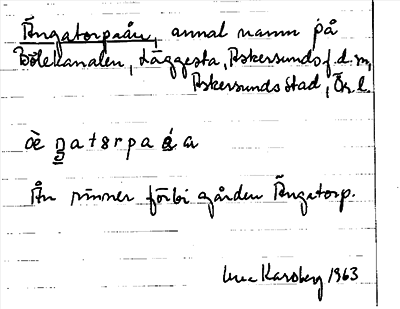 Ängatorpaån, annat namn på
Bölekanalen, Läggesta, Askersunds f.d. m,
Askersunds stad, Ör. l.
Ån rinner förbi gården Ängatorp.
Karsberg 1963